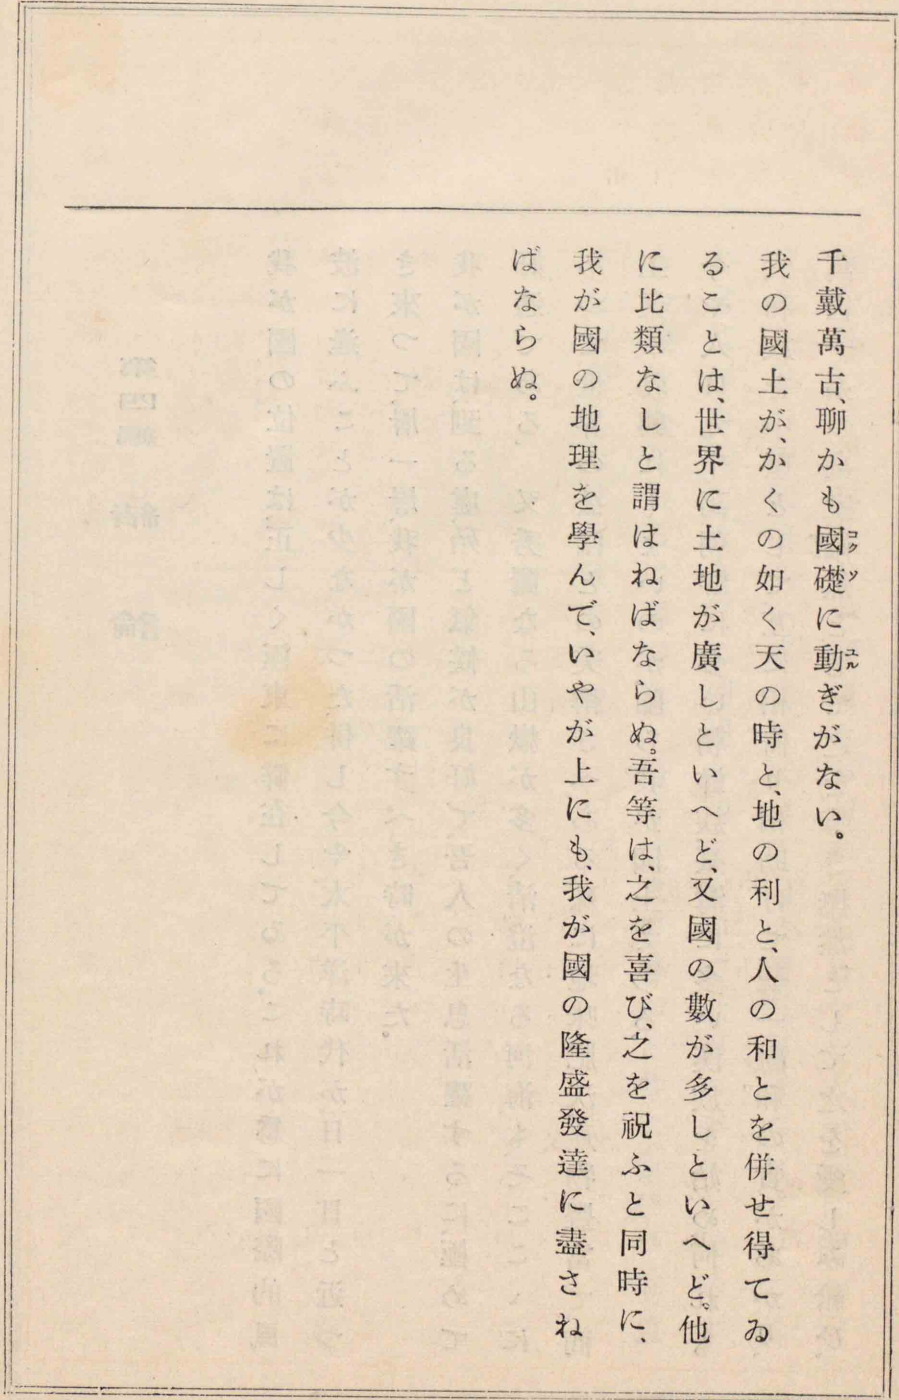 千戴萬古、聊かも國礎に動ぎがない。
我の國土が、かくの如く天の時と、地の利と、人の和とを併せ得てゐ
ることは、世界に土地が廣しといへど、又國の數が多しといへど。他
に比類なしと謂はねばならぬ。吾等は、之を喜び、之を祝ふと同時に、
我が國の地理を學んで、いやが上にも、我が國の隆盛發達に盡さね
ばならぬ。